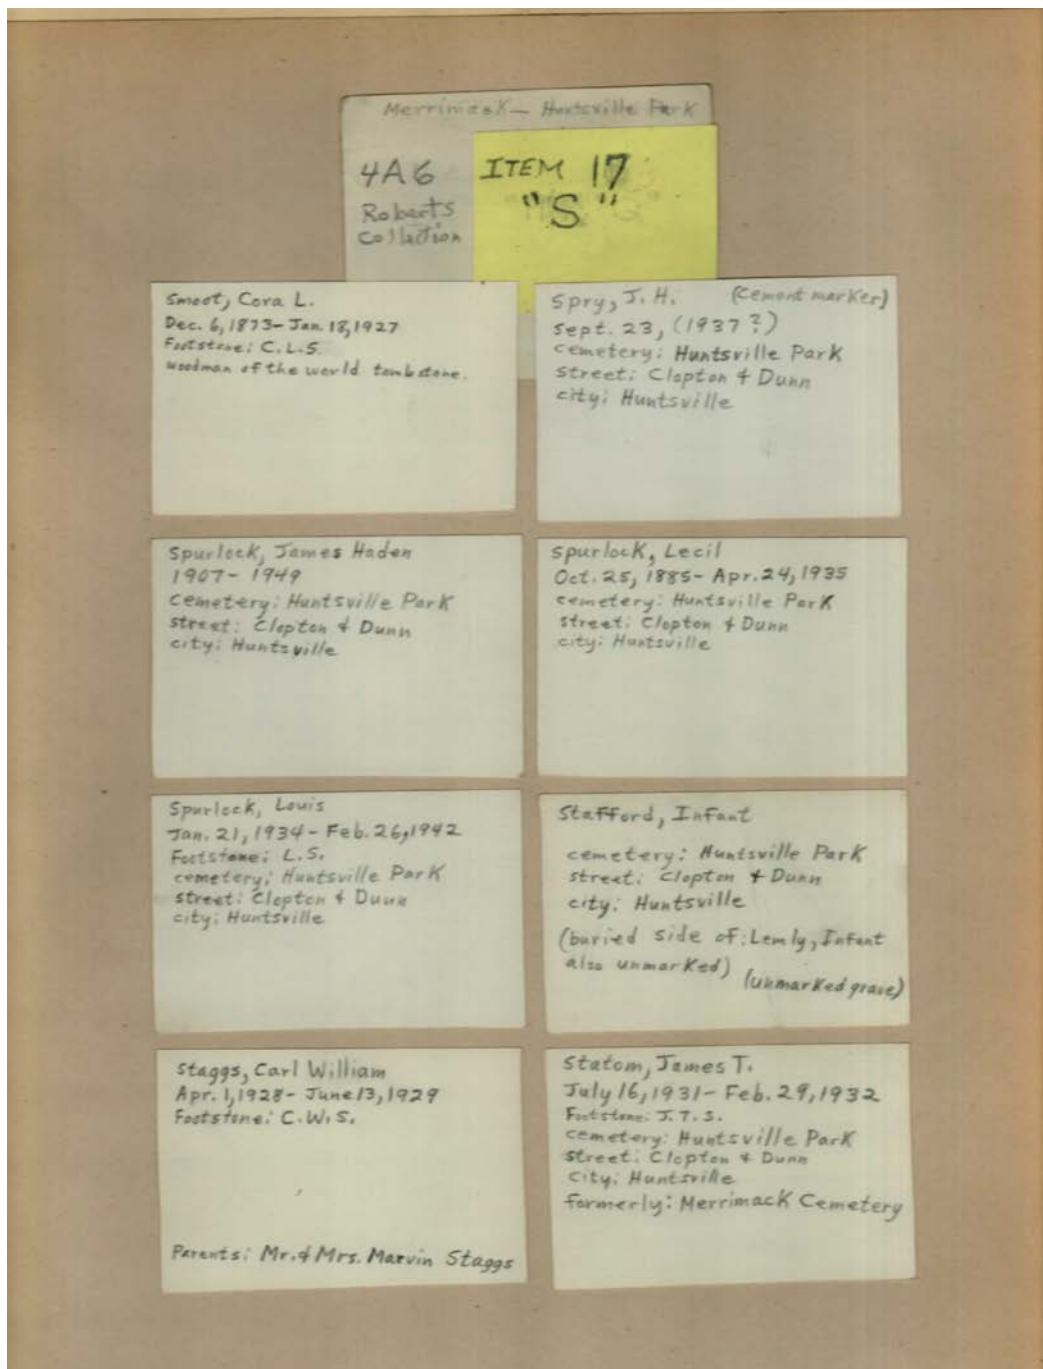 Merrimack — Huntsville Park
4A6
Roberts
Collection
ITEM 17
"S"
Smoot, Cora L.
Dec. 6, 1873 - Jan. 18, 1927
Footstone: C.L.S.
woodman of the world tombstone.
Spry, J. H. (Cement marker)
Sept. 23, (1937?)
cemetery: Huntsville Park
street: Clopton & Dunn
city: Huntsville
Spurlock, James Haden
1907 - 1949
cemetery: Huntsville Park
street: Clopton & Dunn
city: Huntsville
Spurlock, Lecil
Oct. 25, 1885 - Apr. 24, 1935
cemetery: Huntsville Park
street: Clopton & Dunn
city: Huntsville
Spurlock, Louis
Jan. 21, 1934 - Feb. 26, 1942
Footstone: L.S.
cemetery: Huntsville Park
street: Clopton & Dunn
city: Huntsville
Stafford, Infant
cemetery: Huntsville Park
street: Clopton & Dunn
city: Huntsville
(buried side of: Lemly, Infant
also unmarked)
(unmarked grave)
Staggs, Carl William
Apr. 1, 1928 - June 13, 1929
Footstone: C.W.S.
Parents: Mr. & Mrs. Marvin Staggs
Statom, James T.
July 16, 1931 - Feb. 29, 1932
Footstone: J.T.S.
cemetery: Huntsville Park
street: Clopton & Dunn
city: Huntsville
formerly: Merrimack Cemetery